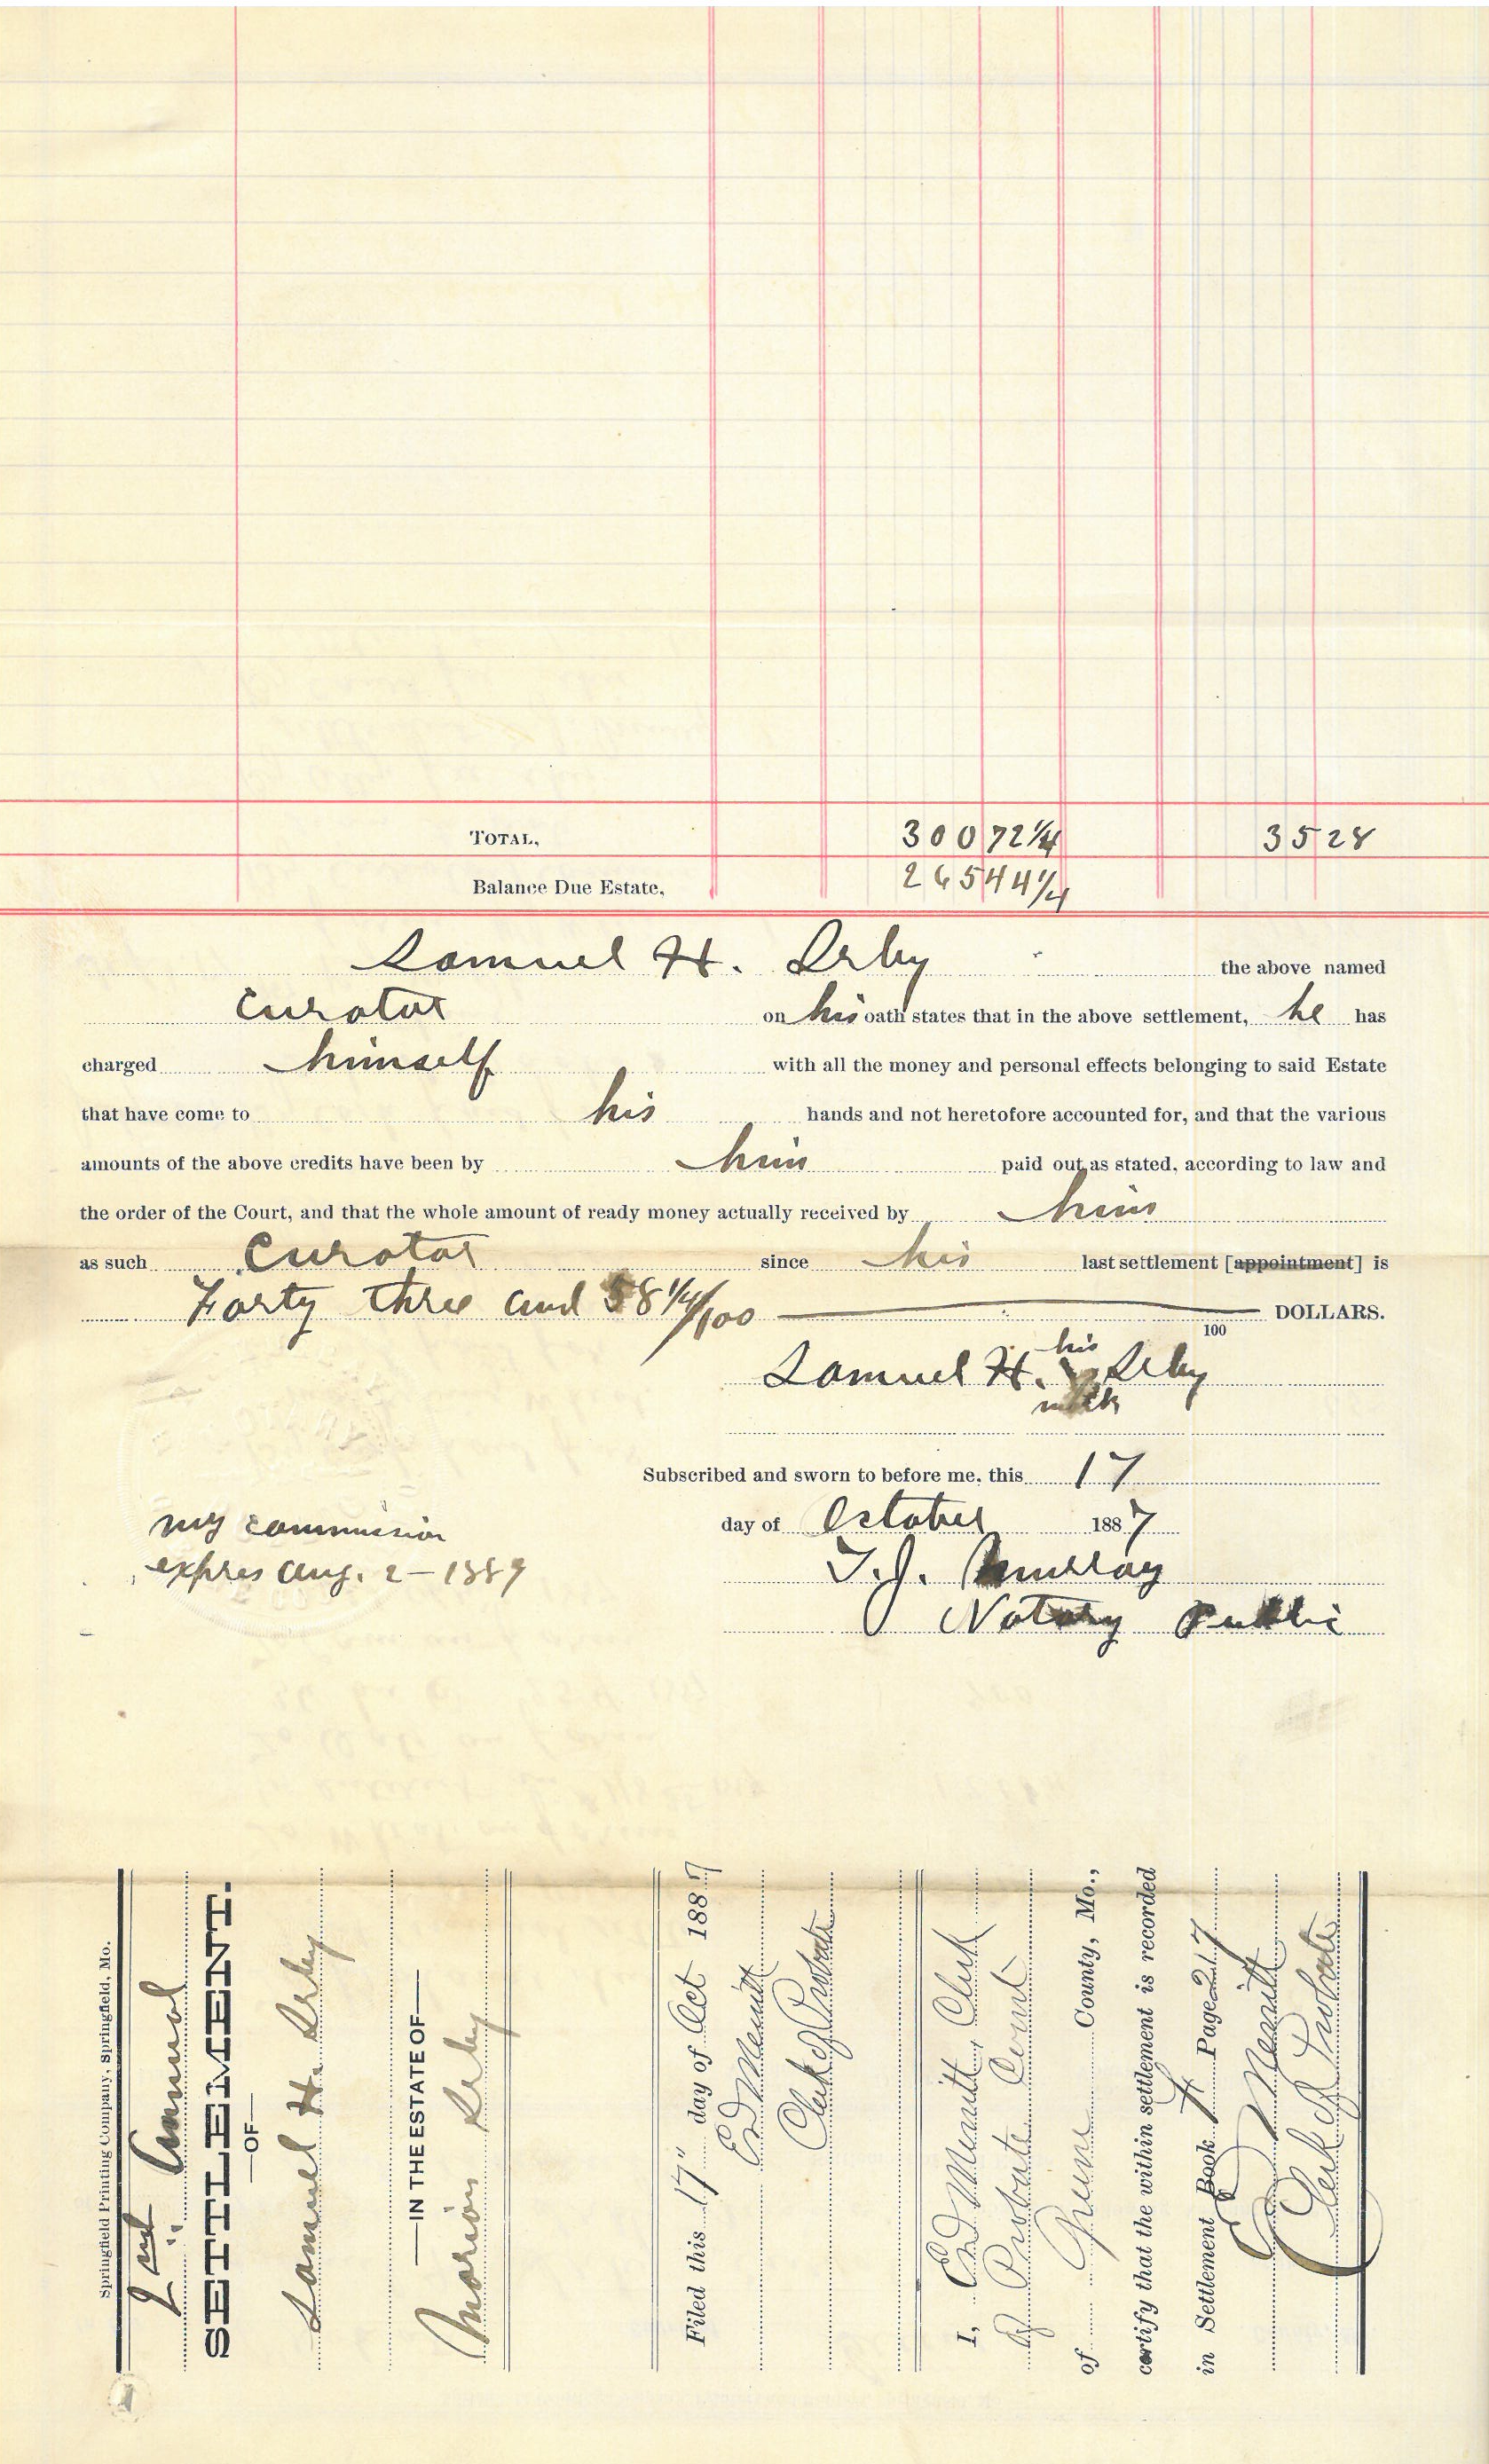 TOTAL, 300 72 1/4 35 28
Balance Due Estate, 265 44 1/4
Samuel H. Irby the above named
Curator on his oath states that in the above settlement, he has
charged himself with all the money and personal effects belonging to said Estate
that have come to his hands and not heretofore accounted for, and that the various
amounts of the above credits have been by him paid out as stated, according to law and
the order of the Court, and that the whole amount of ready money actually received by him
as such Curator since his last settlement [appointment] is
Forty three and 58 1/4/100 DOLLARS.
100
his
Samuel H. X Irby
mark
Subscribed and sworn to before me, this 17
day of October 1887
my commission
expres Aug. 2 - 1889
T. J. Murray
Notary Public
Springfield Printing Company, Springfield, Mo.
2nd Annual
SETTLEMENT.
—OF—
Samuel H. Irby
—IN THE ESTATE OF—
Marion Irby
Filed this 17" day of Oct 1887
Ed Merritt
Clerk of Probate
I, Ed Merritt, Clerk
of Probate Court
of Greene County, Mo.,
certify that the within settlement is recorded
in Settlement Book H Page 217
Ed Merritt
Clerk of Probate